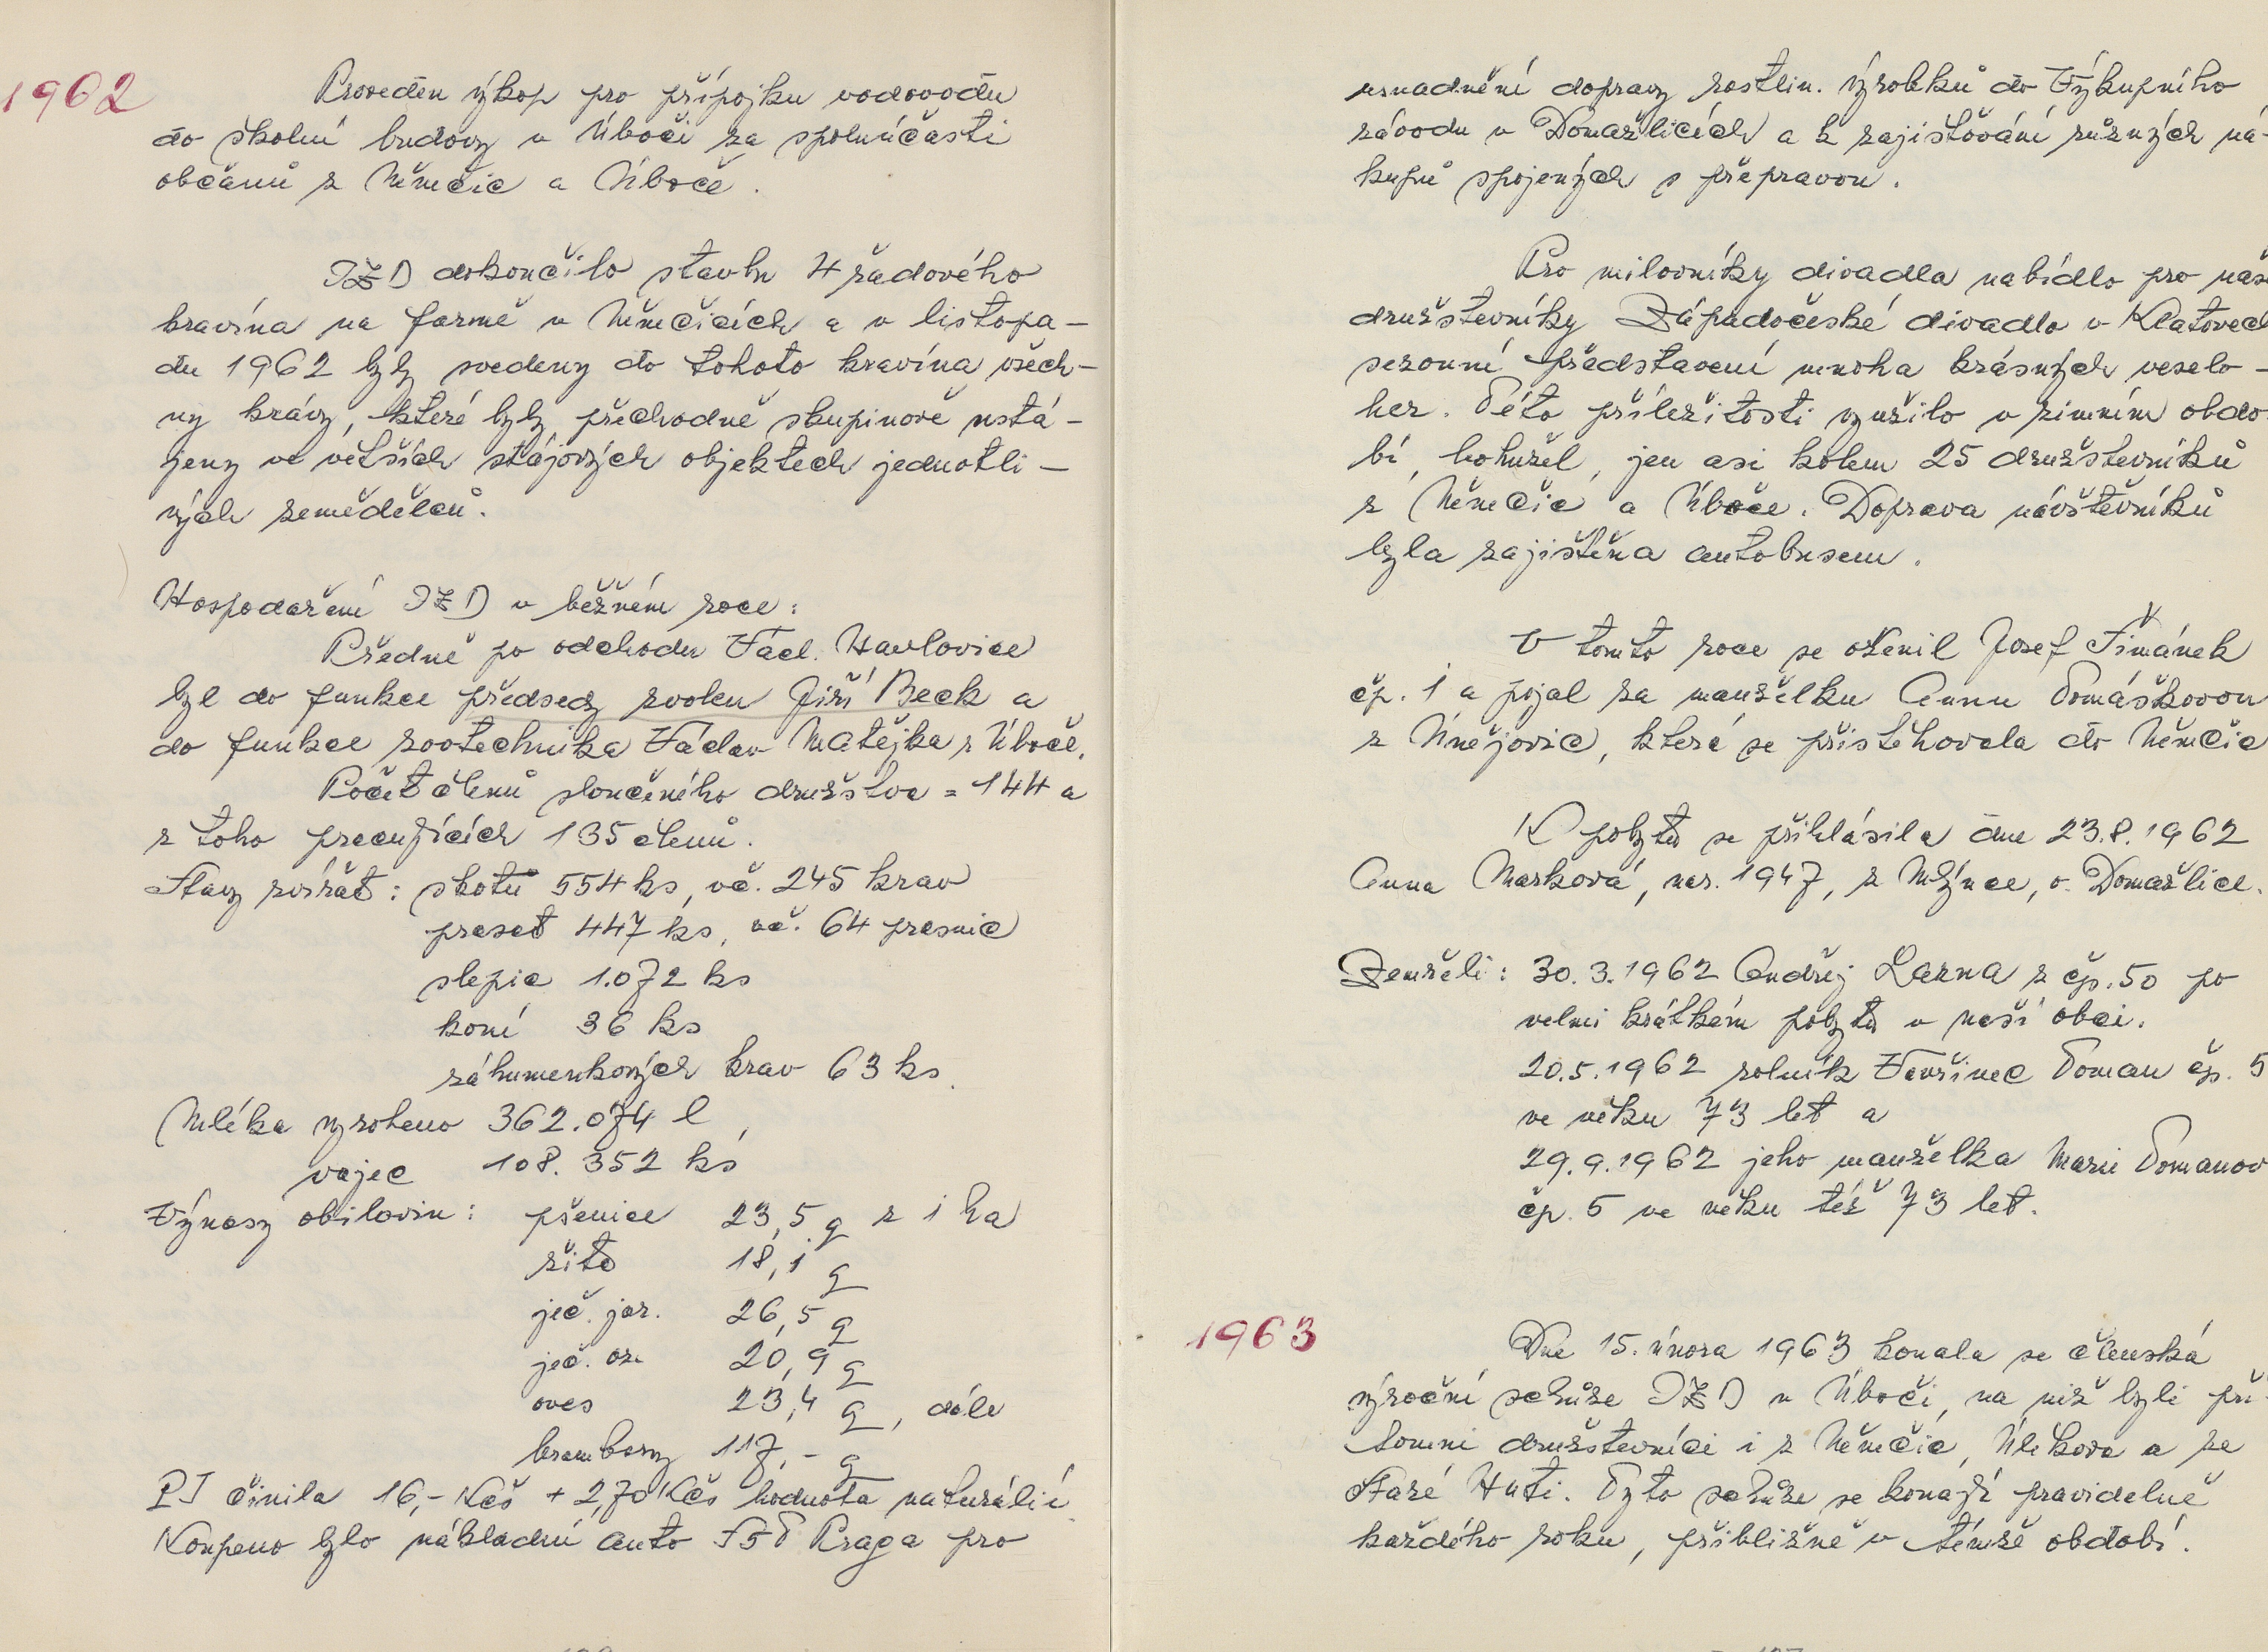 1962
Proveden výkop pro přípojku vodovodu
do školní budovy v Úboči za spoluúčasti
občanů z Němčic a Úboče.
JZD dokončilo stavbu 4 řadového
kravína na farmě v Němčicích a v listopa-
du 1962 byly svedeny do tohoto kravína všech-
ny krávy, které byly přechodně skupinově ustá-
jeny ve větších stájových objektech jednotli-
vých zemědělců.
Hospodaření JZD v běžném roce:
Předně po odchodu Václ. Havlovice
byl do funkce předsedy zvolen Jiří Beck a
do funkce zootechnika Václav Matějka z Úboče.
Počet členů sloučeného družstva = 144 a
z toho pracujících 135 členů.
Stavy zvířat: skotu 554 ks, vč. 245 krav
prasat 447 ks, vč. 64 prasnic
slepic 1.072 ks
koní 36 ks
záhumenkových krav 63 ks.
Mléka vyrobeno 362.074 l,
vajec 108.352 ks
Výnosy obilovin: pšenice 23,5 q z 1 ha
žito 18,1 q
ječ. jar. 26,5 q
ječ. oz. 20,9 q
oves 23,4 q, dále
brambory 117,- q
PJ činila 16,- Kčs + 2,70 Kčs hodnota naturálií.
Koupeno bylo nákladní auto S5T Praga pro
usnadnění dopravy rostlin. výrobků do Výkupního
závodu v Domažlicích a k zajišťování různých ná-
kupů spojených s přepravou.
Pro milovníky divadla nabídlo pro naše
družstevníky Západočeské divadlo v Klatovech
sezonní představení mnoha krásných veselo-
her. Této příležitosti využilo v zimním obdo-
bí, bohužel, jen asi kolem 25 družstevníků
z Němčic a Úboče. Doprava návštěvníků
byla zajištěna autobusem.
V tomto roce se oženil Josef Šimánek
čp. 1 a pojal za manželku Annu Tomáškovou
z Únějovic, která se přistěhovala do Němčic
K pobytu se přihlásila dne 23.8.1962
Anna Marková, nar. 1947, z Mlýnce, o. Domažlice.
Zemřeli: 30.3.1962 Ondřej Lazna z čp. 50 po
velmi krátkém pobytu v naší obci.
20.5.1962 rolník Vavřinec Toman čp. 5
ve věku 73 let a
29.9.1962 jeho manželka Marie Tomanov
čp. 5 ve věku též 73 let.
1963
Dne 15. února 1963 konala se členská
výroční schůze JZD v Úboči, na niž byli pří-
tomni družstevníci i z Němčic, Úlíkova a ze
Staré Huti. Tyto schůze se konají pravidelně
každého roku, přibližně v témže období.